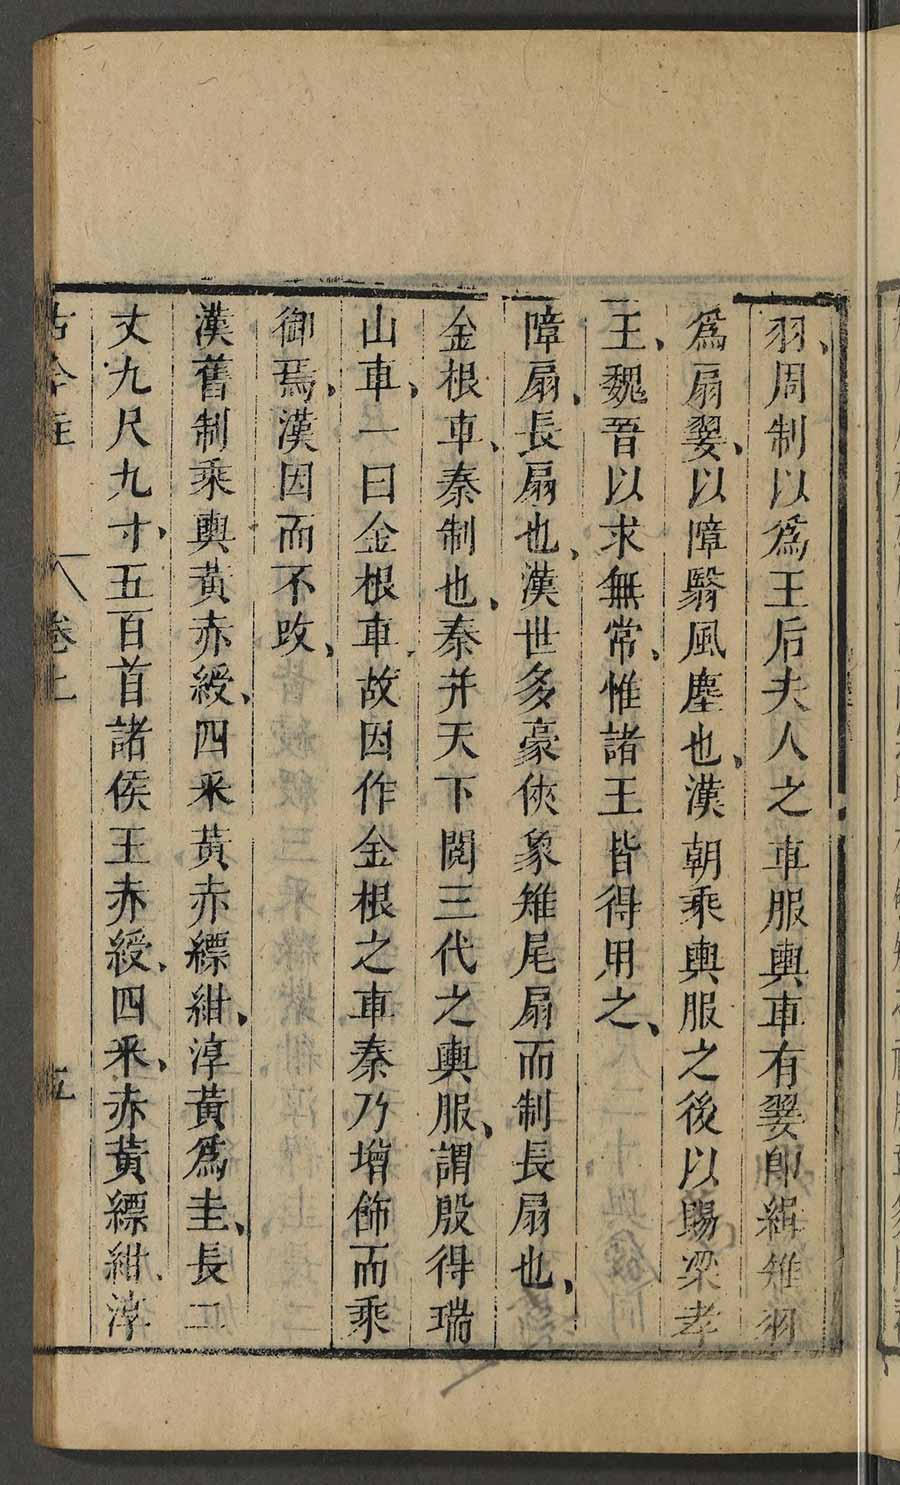 羽、周制以爲王后夫人之車服輿車有翣卽緝雉羽
爲扇翣、以障翳風塵也、漢朝乘輿服之後以賜梁孝
王、魏晉以來無常、惟諸王皆得用之、
障扇、長扇也、漢世多豪俠象雉尾扇而制長扇也、
金根車、秦制也、秦并天下閱三代之輿服、謂殷得瑞
山車、一曰金根車故因作金根之車秦乃增飾而乘
御焉、漢因而不改、
漢舊制乘輿黃赤綬、四采黃赤縹紺、淳黃爲圭、長二
丈九尺九寸、五百首諸侯王赤綬、四采、赤黃縹紺、淳
古今注 卷上 五